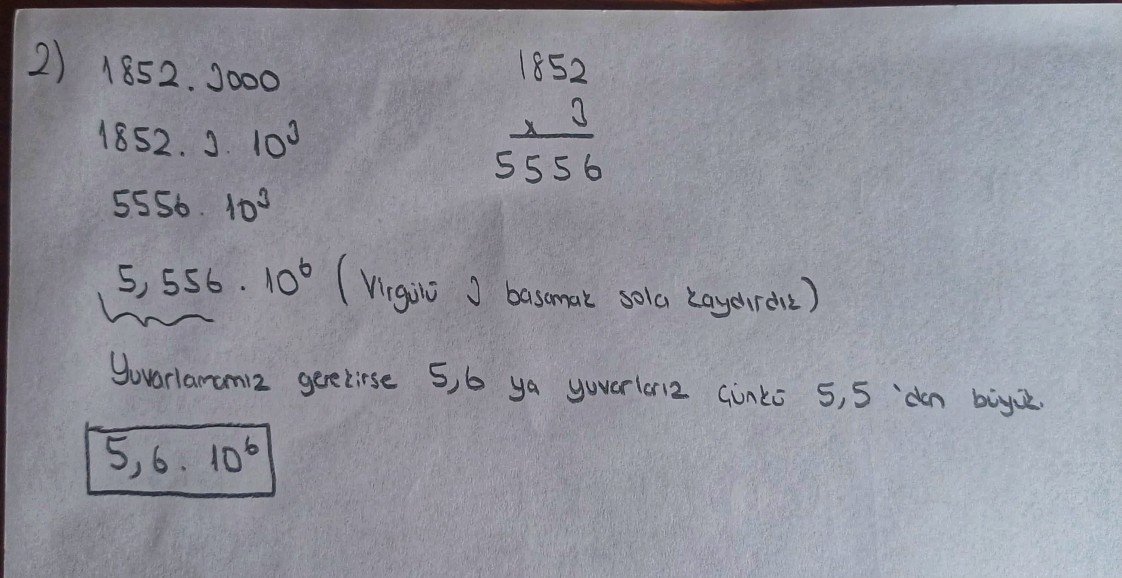 2) 1852.3000
1852.3.10³
5556.10³
5,556.10⁶ (Virgülü 3 basamak sola kaydırdık)
Yuvarlamamız gerekirse 5,6 ya yuvarlarız çünkü 5,5 'den büyük.
5,6.10⁶
1852
x 3
5556